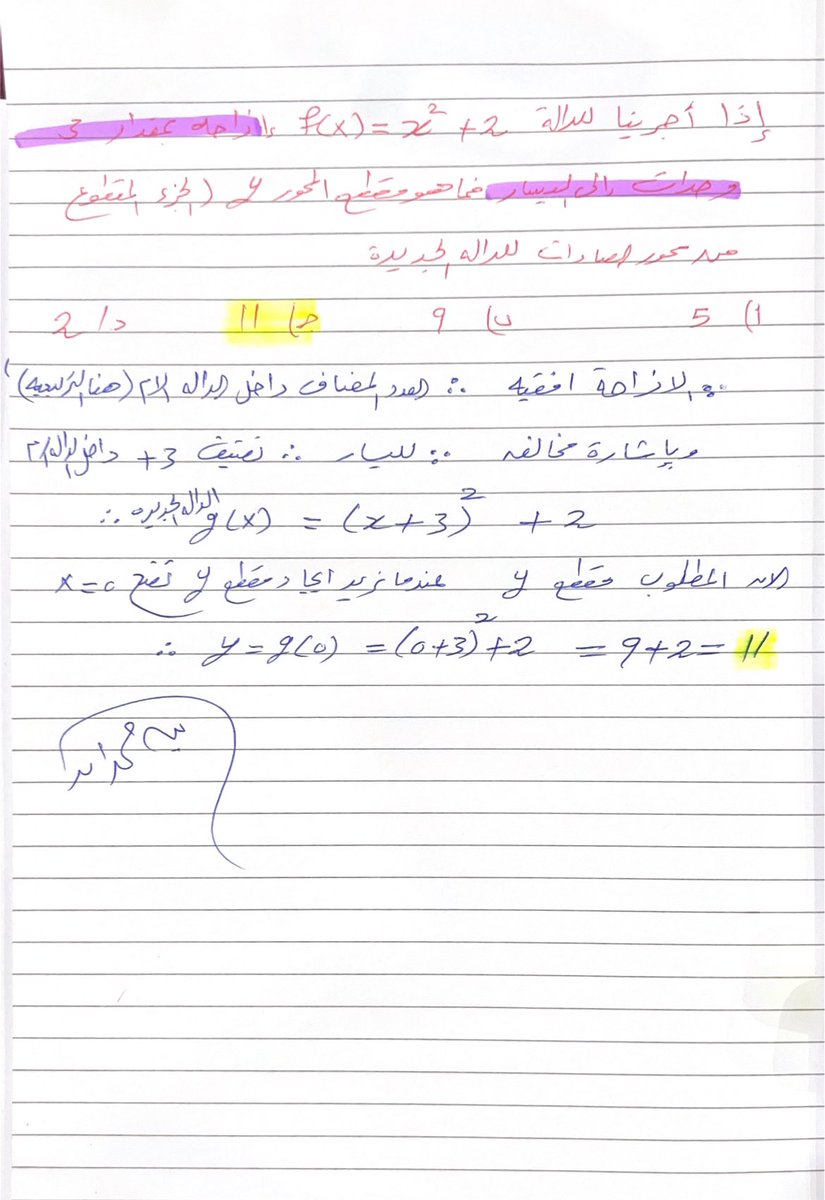 إذا أجرينا للدالة f(x) = x² + 2 إزاحه بمقدار 3
وحدات إلى اليسار فما هو مقطع المحور y (الجزء المقطوع
من محور الصادات للداله الجديدة
أ) 5 ب) 9 ج) 11 د) 2
∵ الازاحة افقيه ∴ العدد المضاف داخل الداله الام (هنا التربيعيه)
وبإشارة مخالفه ∵ لليسار ∴ نضيف 3+ داخل الداله الام
∴ الداله الجديده g(x) = (x+3)² + 2
الان المطلوب مقطع y عندما نريد ايجاد مقطع y نضع x = 0
∴ y = g(0) = (0+3)² + 2 = 9 + 2 = 11